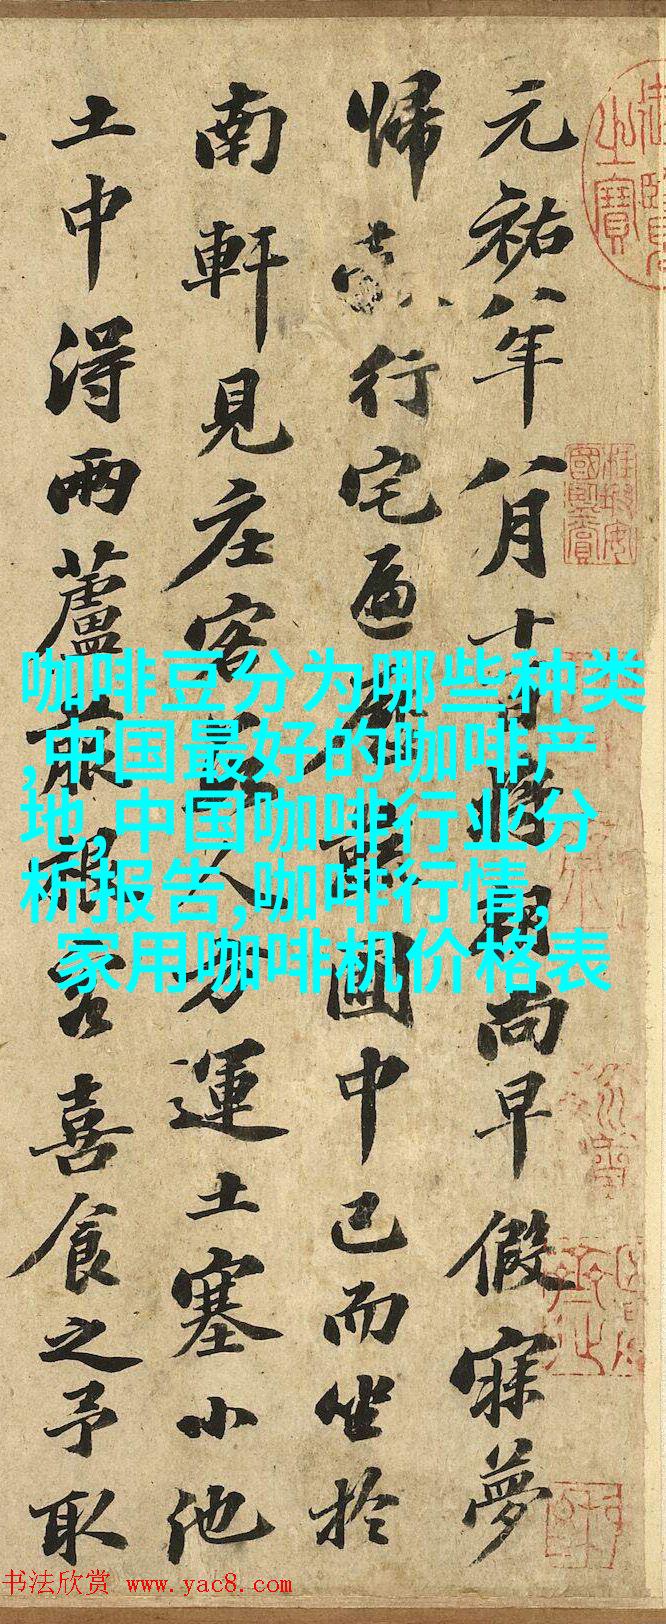 元祐八年八月十日將朝尚早假寐夢
歸行宅遍歷蔬圃中已而坐於
南軒見庄客數人方運土塞小池
土中得兩蘆菔根客喜食之予取
咖啡豆分为哪些种类
,中国最好的咖啡产
地,中国咖啡行业分
析报告,咖啡行情,
家用咖啡机价格表
之寶
书法欣赏 www.yac8.com